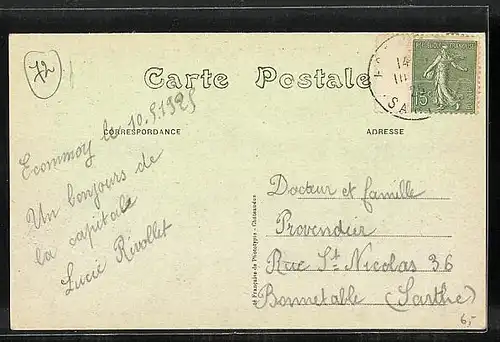 72
Carte Postale
CORRESPONDANCE
ADRESSE
REPUBLIQUE FRANÇAISE
15
14
SA
Ecommoy le 10.9.1925
Un bonjours de
la capitale
Lucie Rivollet
Docteur et famille
Provendier
Rue St Nicolas 36
Bonnetable (Sarthe)
Française de Phototypie - Châteaudun
6,-